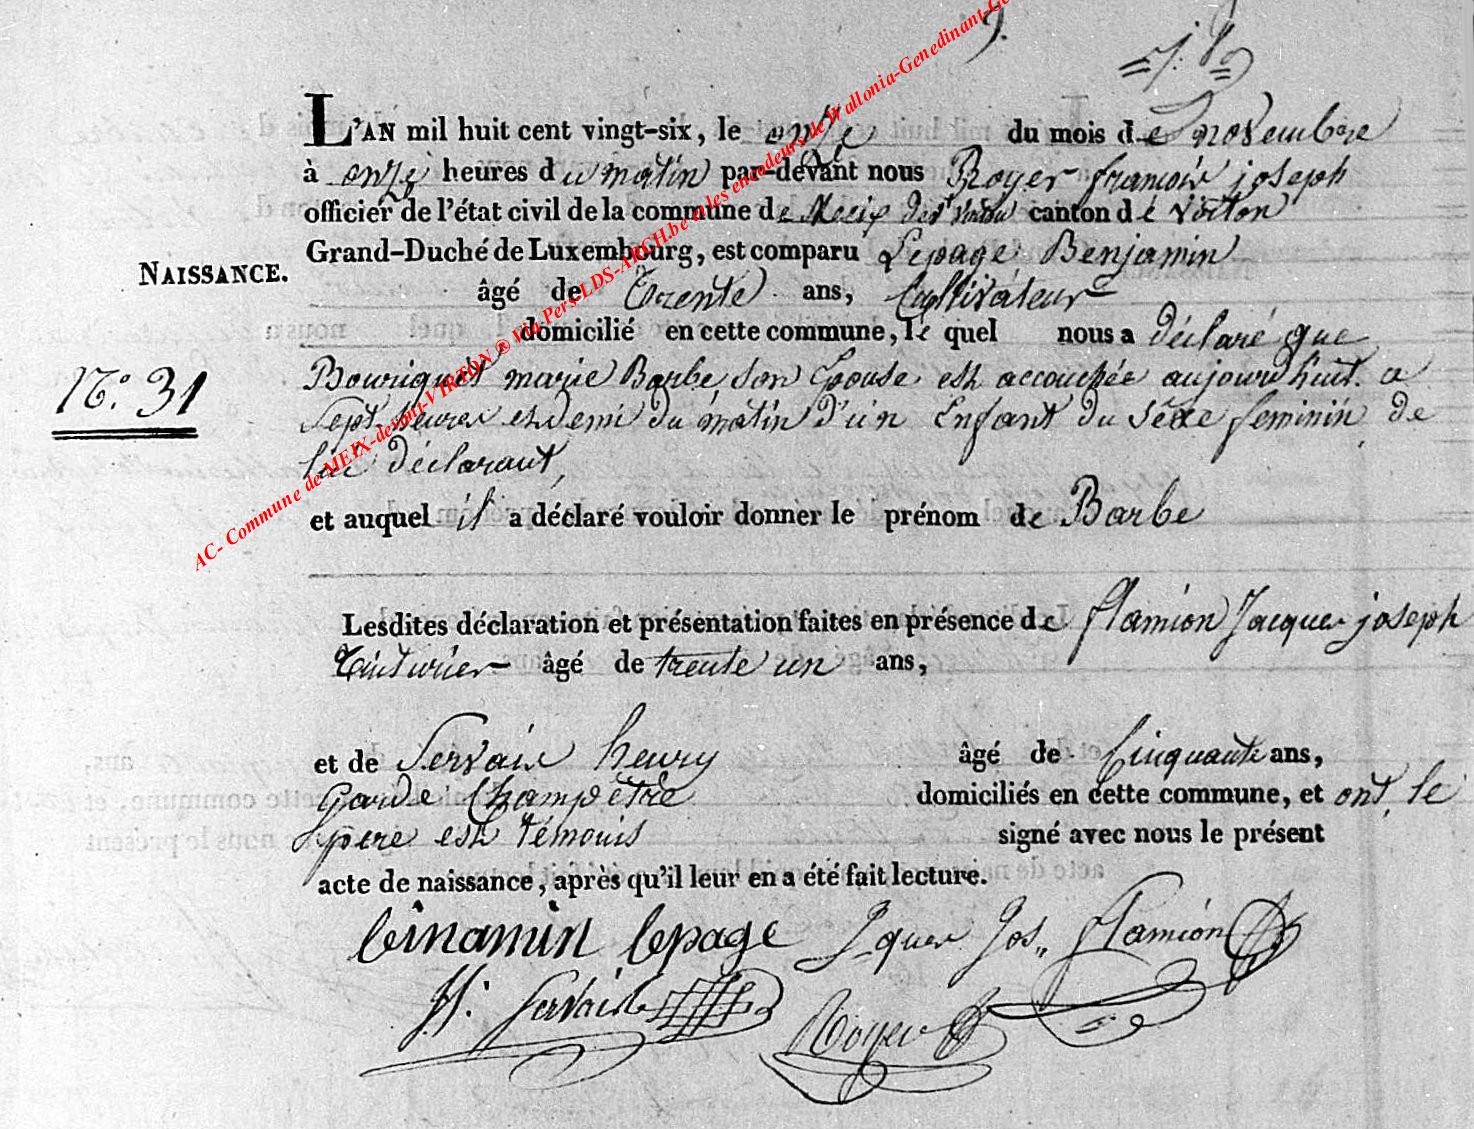 9.
L'AN mil huit cent vingt-six, le onze du mois de novembre
à onze heures du matin par-devant nous Royer francois joseph
officier de l'état civil de la commune de Meix devt virton canton de virton
Grand-Duché de Luxembourg, est comparu Lepage Benjamin
NAISSANCE.
âgé de Trente ans, Cultivateur
domicilié en cette commune, le quel nous a déclaré que
N.º 31
marie Barbe, son Epouse est accouchée aujourd'huit a
Sept heures et demi du matin d'un Enfant du Séxe feminin de
lui déclarant,
et auquel il a déclaré vouloir donner le prénom de Barbe
Lesdites déclaration et présentation faites en présence de flamion Jacques joseph
Tinturier âgé de trente un ans,
et de Servais henry âgé de Cinquante ans,
Garde Champêtre domiciliés en cette commune, et ont le
pere est témouis signé avec nous le présent
acte de naissance, après qu'il leur en a été fait lecture.
beinamin lepage J-ques Jos,, flamion
H. Servais Royer
AC- Commune de MEIX-devant-VIRTON ® Via Pers-LDS-ARCH.be et les encodeurs de Wallonia-Genedinant-Ge